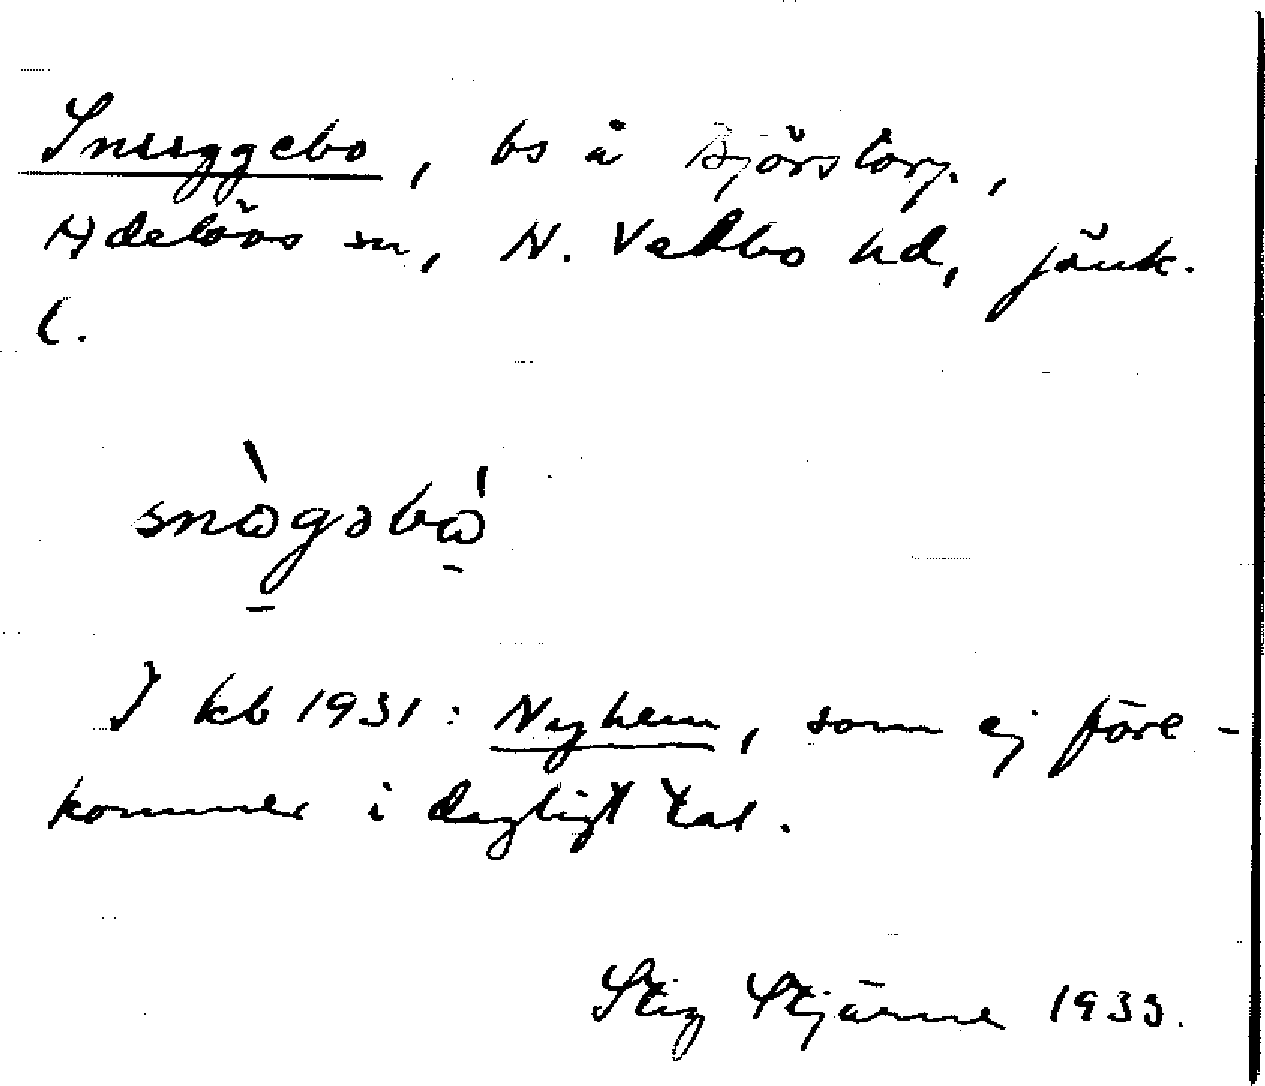 Snuggebo, bs å Björstorp,
Adelövs sn, N. Vedbo hd, Jönk.
l.
snògəbó
I kb 1931: Nyhem, som ej före-
kommer i dagligt tal.
Stig Stjärne 1933.